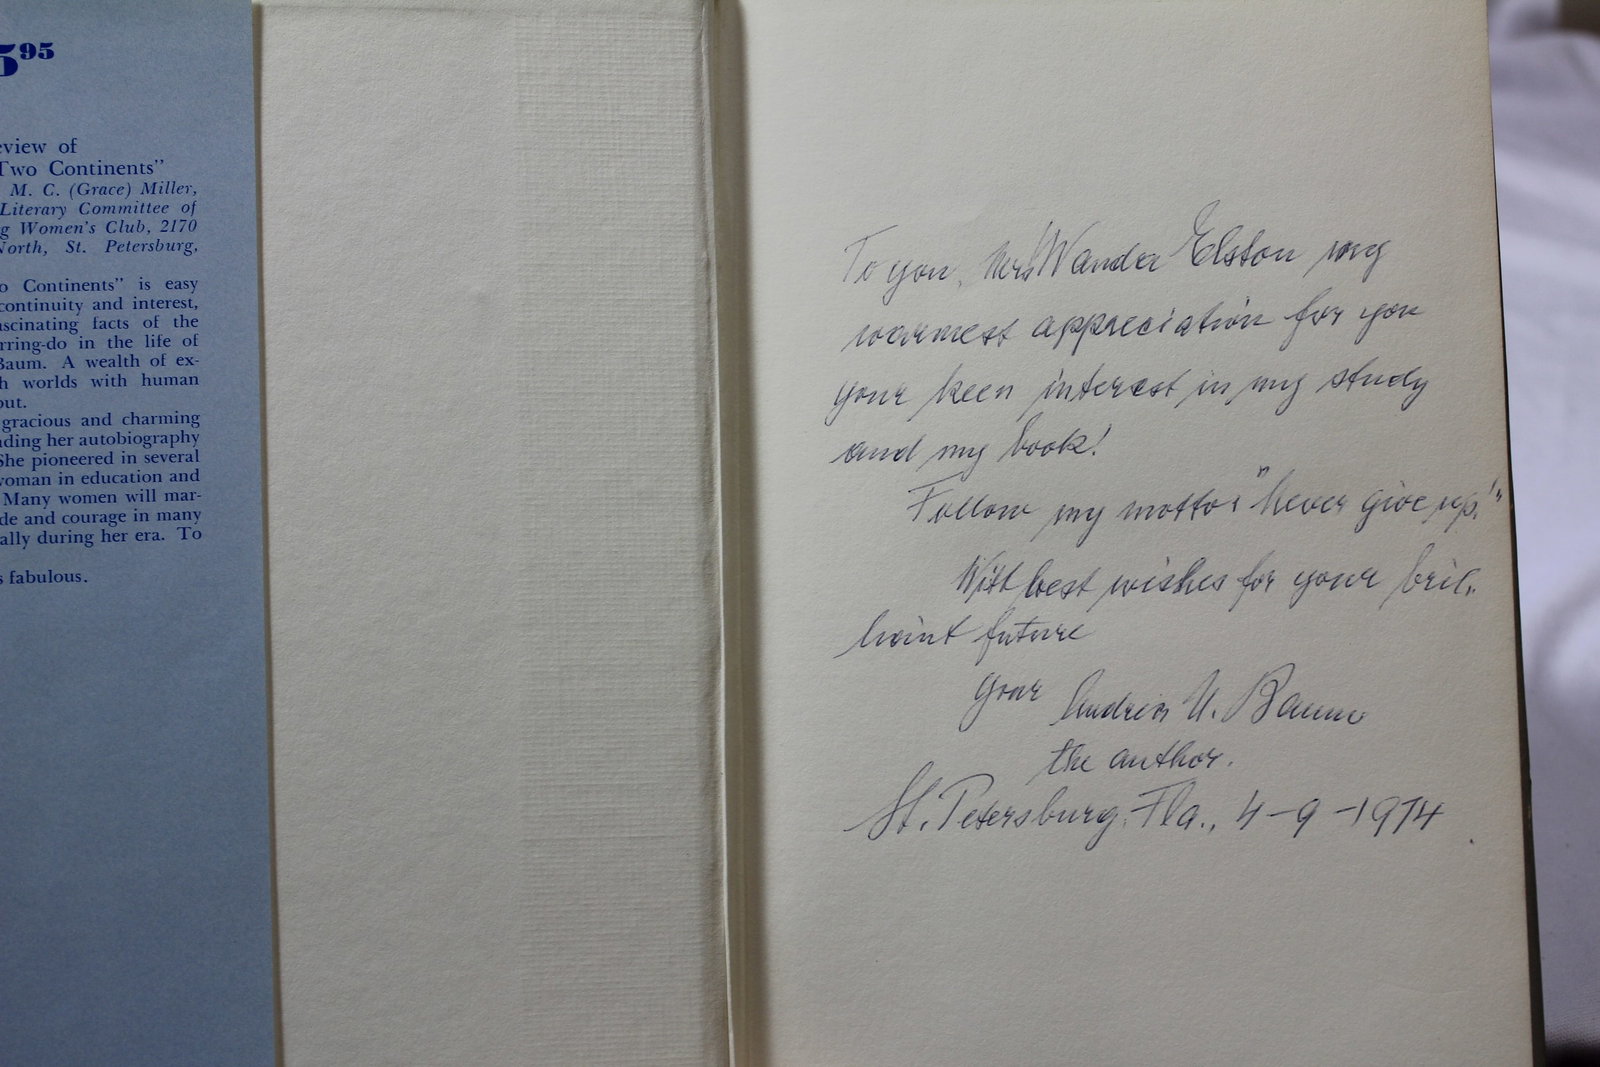 5.95
eview of
Two Continents"
M. C. (Grace) Miller,
Literary Committee of
g Women's Club, 2170
North, St. Petersburg,
o Continents" is easy
continuity and interest,
ascinating facts of the
rring-do in the life of
Baum. A wealth of ex-
h worlds with human
out.
gracious and charming
ading her autobiography
She pioneered in several
woman in education and
Many women will mar-
de and courage in many
ally during her era. To
s fabulous.
To you, Mrs Wanda Elston my
warmest appreciation for you
your keen interest in my study
and my book!
Follow my motto: "Never give up!"
With best wishes for your bril-
liant future
your U. Baum
the author.
St. Petersburg. Fla., 4-9-1974